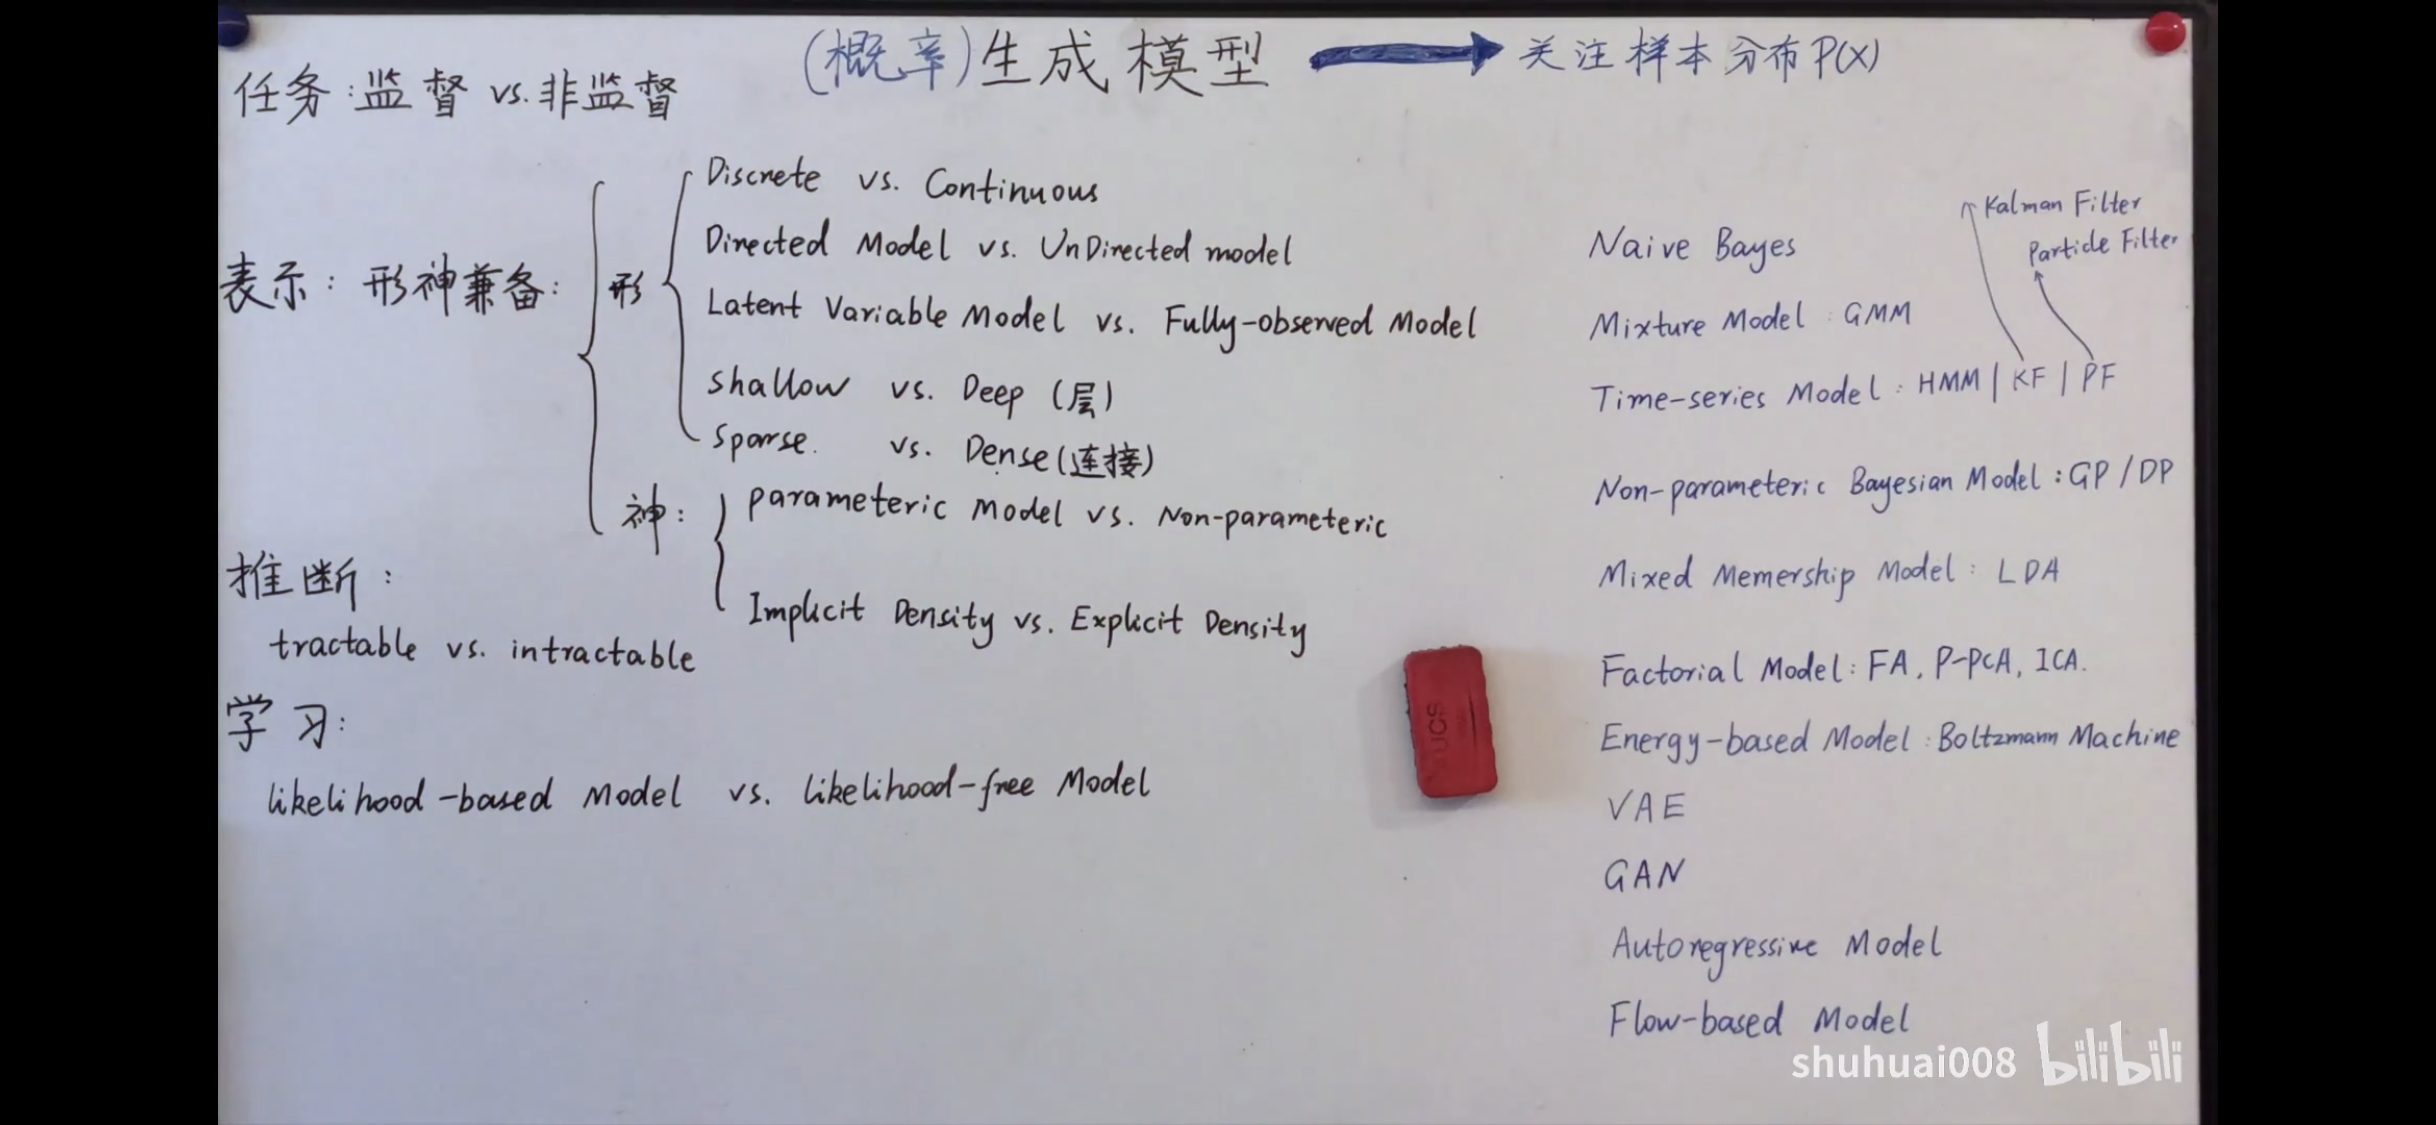 (概率)生成模型 → 关注样本分布 P(X)
任务:监督 vs. 非监督
表示: 形神兼备:
形
Discrete vs. Continuous
Directed Model vs. UnDirected model
Latent Variable Model vs. Fully-observed Model
Shallow vs. Deep (层)
Sparse. vs. Dense (连接)
神:
parameteric Model vs. Non-parameteric
Implicit Density vs. Explicit Density
推断:
tractable vs. intractable
学习:
likelihood-based Model vs. likelihood-free Model
Kalman Filter
Particle Filter
Naive Bayes
Mixture Model : GMM
Time-series Model : HMM | KF | PF
Non-parameteric Bayesian Model : GP / DP
Mixed Memership Model : LDA
Factorial Model : FA, P-PCA, ICA.
Energy-based Model : Boltzmann Machine
VAE
GAN
Autoregressive Model
Flow-based Model
shuhuai008 bilibili